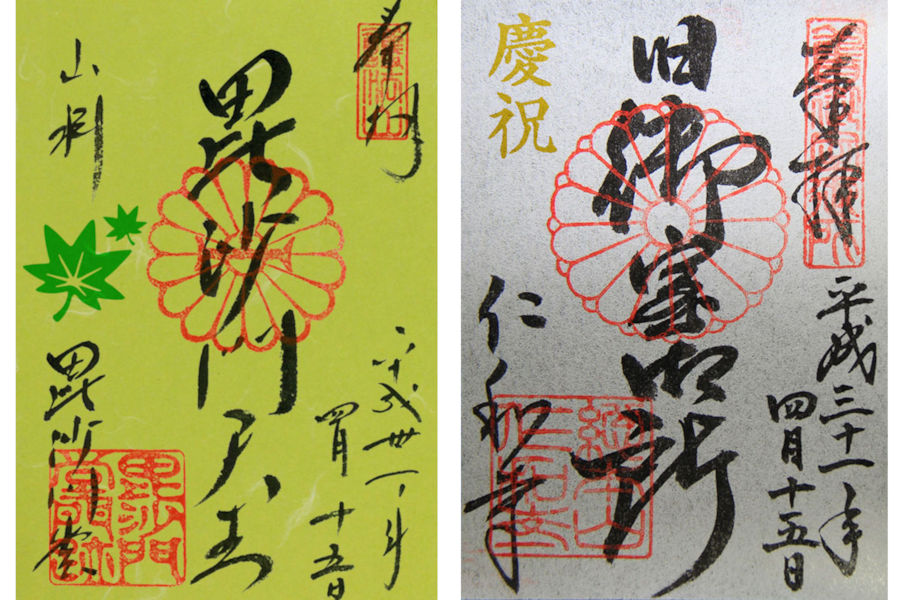 奉拝
平成卅一年
四月十五日
毘沙門天王
山科
毘沙門堂
奉拝
平成三十一年
四月十五日
旧御室御所
慶祝
仁和寺
総本山
仁和寺